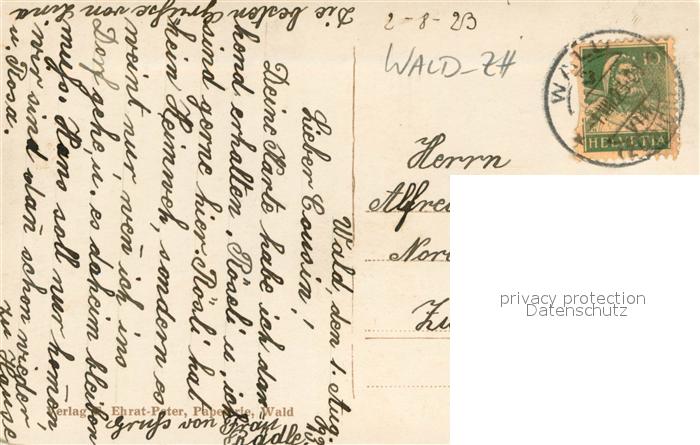 2-8-23
WALD-ZH
WALD
10
HELVETIA
Herrn
Alfred
Zü
privacy protection
Datenschutz
Wald, den 1. Aug.
Lieber Cousin!
Deine Karte habe ich dan
kend erhalten. Röseli u. ich
sind gerne hier. Rösli hat
kein Heimweh, sondern es
weint nur, wen̄ ich ins
Dorf gehe u. es daheim bleiben
muss. Hans soll nur kom̄en,
wir sind dan̄ schon wieder
zu Hause
Die besten Grüsse von Lina
u. Rosa.
Gruss von Frau
Verlag Ehrat-Peter, Papeterie, Wald